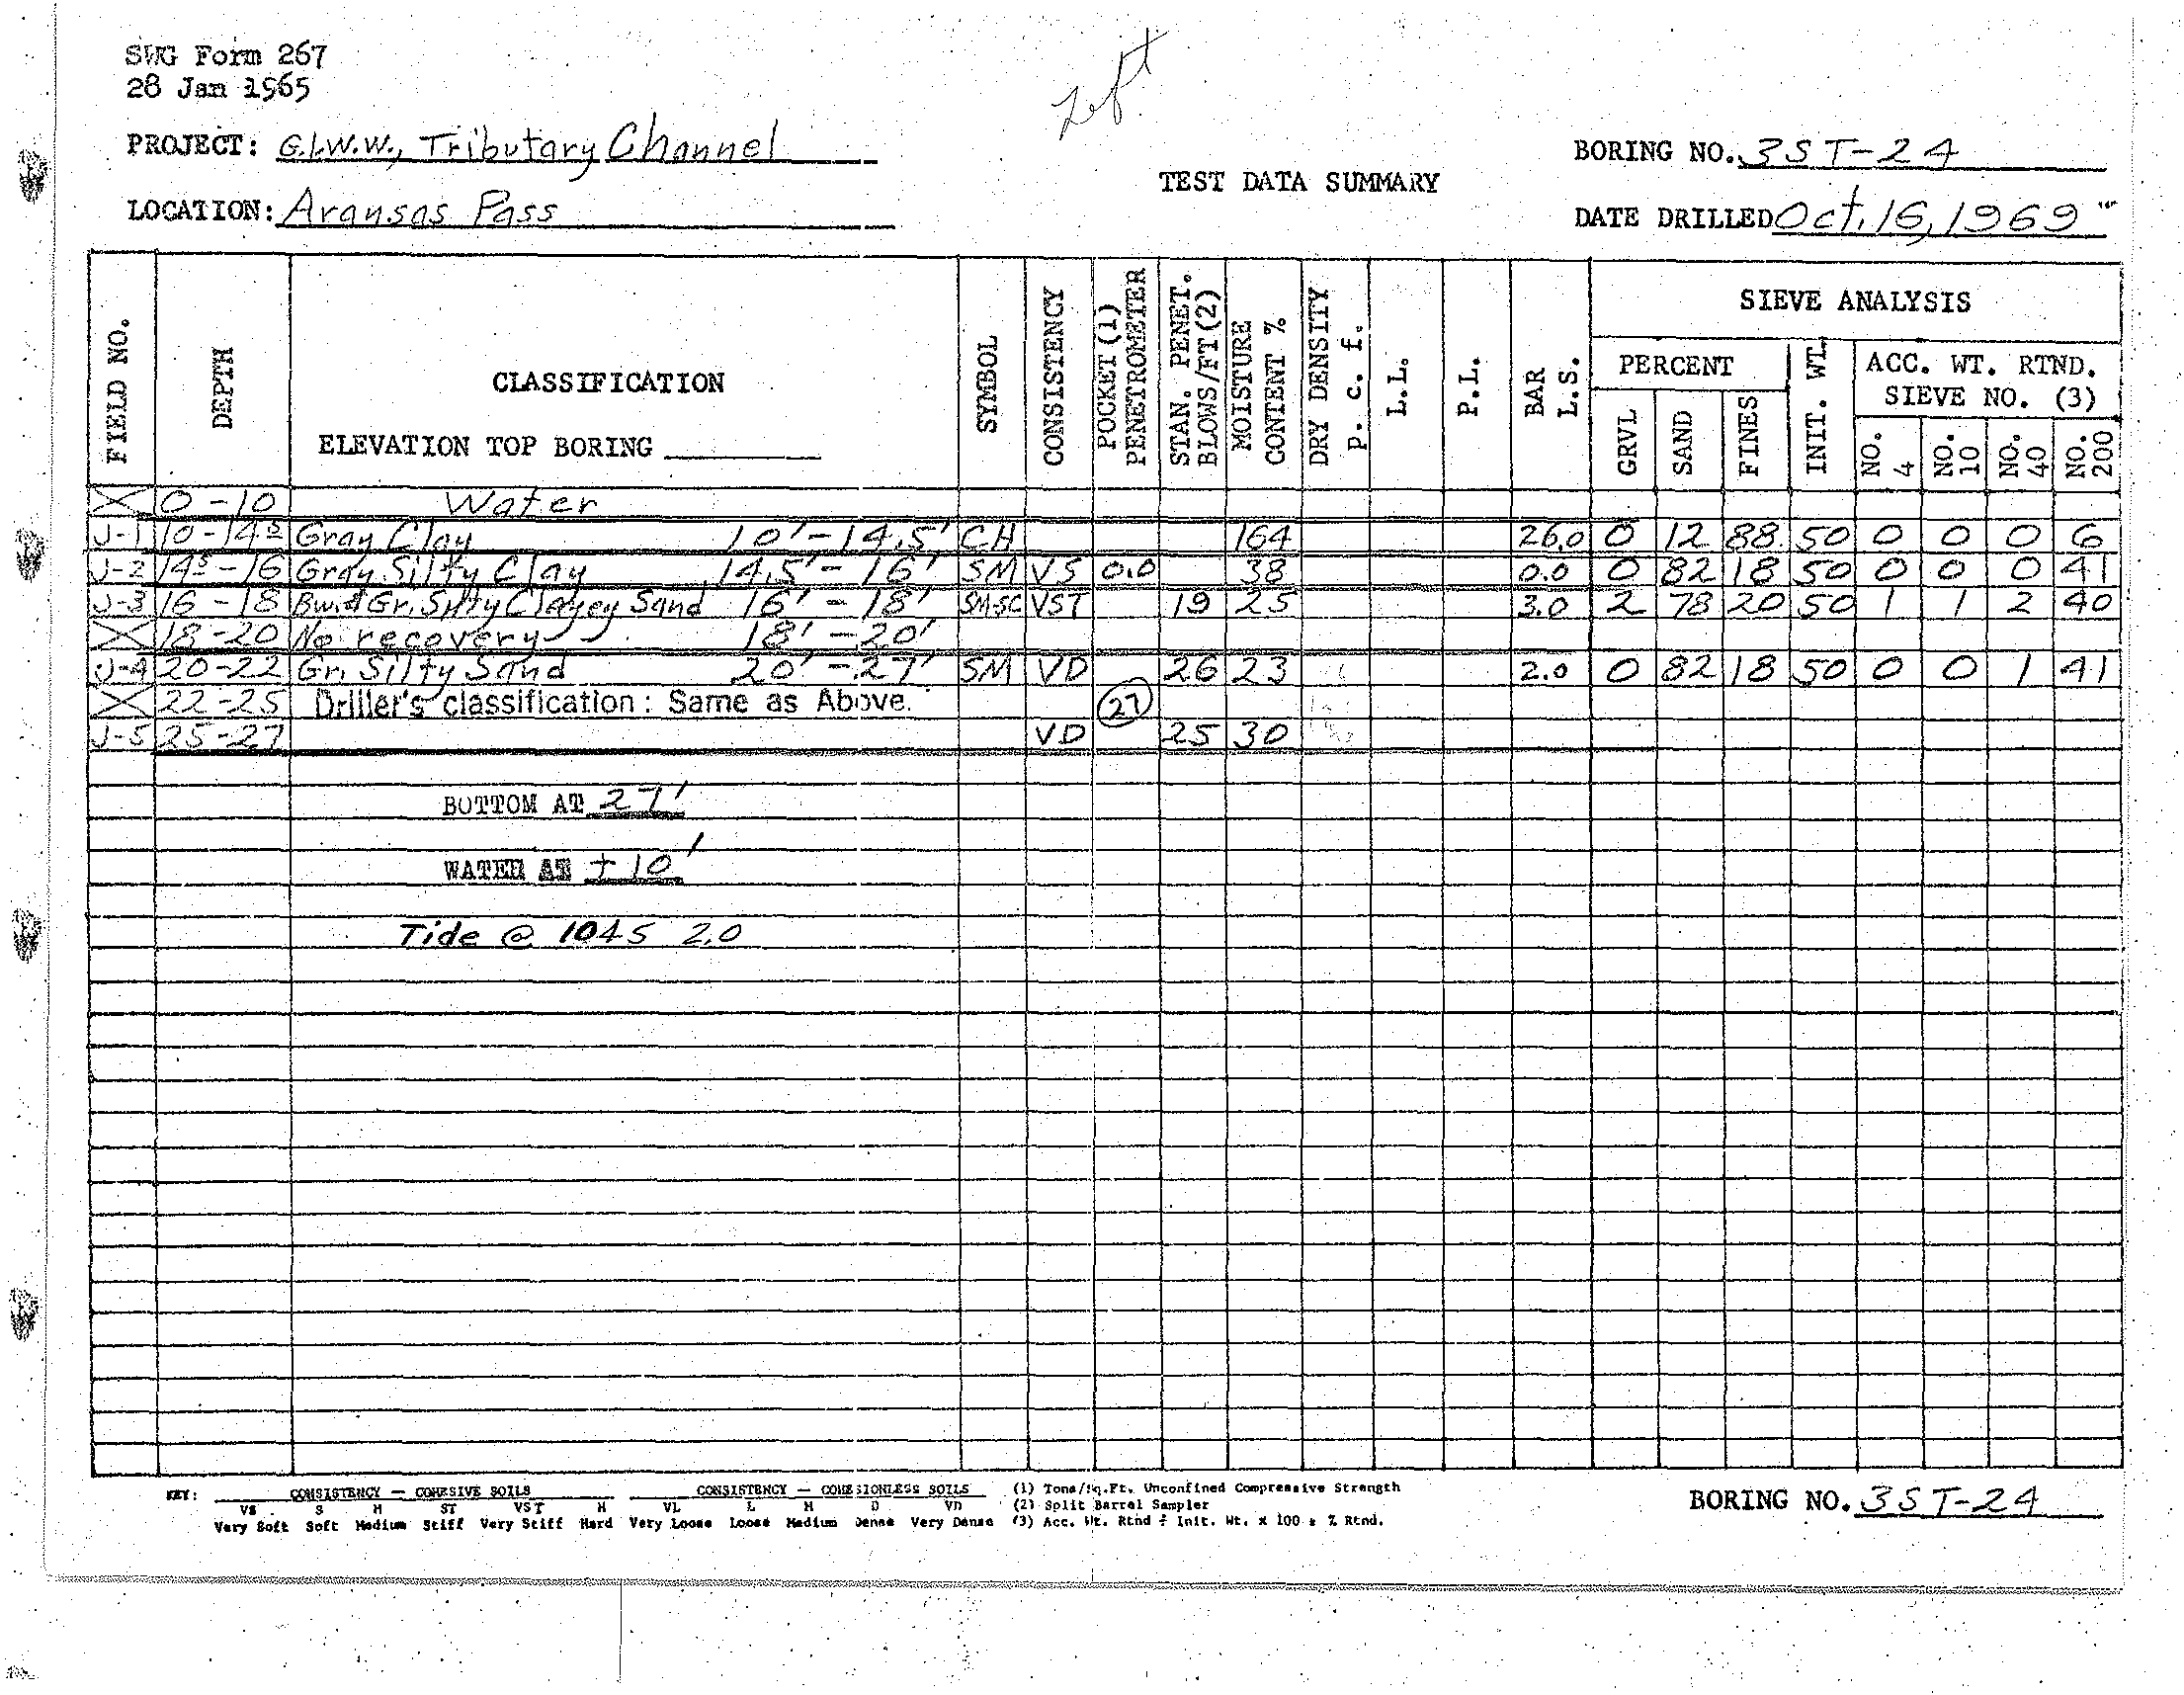 SWG Form 267
28 Jan 1965
PROJECT: G.I.W.W., Tributary Channel
LOCATION: Aransas Pass
TEST DATA SUMMARY
BORING NO. 3ST-24
DATE DRILLED Oct. 16, 1969
FIELD NO. DEPTH CLASSIFICATION SYMBOL CONSISTENCY POCKET (1) PENETROMETER STAN. PENET. BLOWS/FT (2) MOISTURE CONTENT % DRY DENSITY p. c. f. L.L. P.L. BAR L.S. SIEVE ANALYSIS
ELEVATION TOP BORING
PERCENT INIT. WT. ACC. WT. RTND. SIEVE NO. (3)
GRVL SAND FINES NO. 4 NO. 10 NO. 40 NO. 200
0-10 Water
J-1 10-14⁵ Gray Clay 10'-14.5' CH 164 26.0 0 12 88 50 0 0 0 6
J-2 14⁵-16 Gray Silty Clay 14.5'-16' SM VS 0.0 38 0.0 0 82 18 50 0 0 0 41
J-3 16-18 Bw.& Gr. Silty Clayey Sand 16'-18' SM-SC VST 19 25 3.0 2 78 20 50 1 1 2 40
18-20 No recovery 18'-20'
J-4 20-22 Gr. Silty Sand 20'-27' SM VD 26 23 2.0 0 82 18 50 0 0 1 41
22-25 Driller's classification: Same as Above. 27
J-5 25-27 VD 25 30
BOTTOM AT 27'
WATER AT +10'
Tide @ 1045 2.0
KEY: CONSISTENCY — COHESIVE SOILS CONSISTENCY — COHESIONLESS SOILS (1) Tons/Sq.Ft. Unconfined Compressive Strength
VS S M ST VST H VL L M D VD (2) Split Barrel Sampler
Very Soft Soft Medium Stiff Very Stiff Hard Very Loose Loose Medium Dense Very Dense (3) Acc. Wt. Rtnd ÷ Init. Wt. x 100 = % Rtnd.
BORING NO. 3ST-24